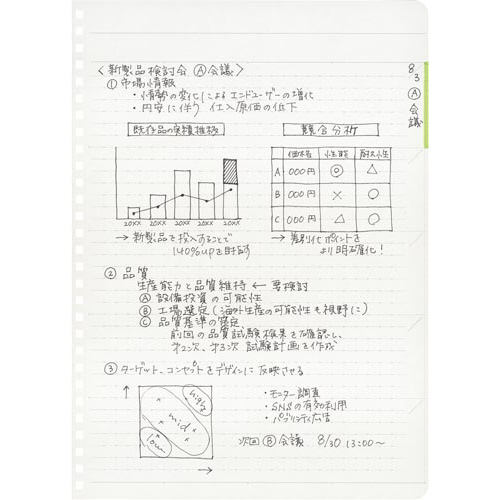 〈新製品検討会 Ⓐ会議〉
8/3 Ⓐ会議
①市場情報
・情勢の変化によるエンドユーザーの増化
・円安に伴う 仕入原価の低下
既存品の実績推移
20XX 20XX 20XX 20XX 20XX
→ 新製品を投入することで
140%upを目指す
競合分析
価格 性能 耐久性
A 000円 ◎ △
B 000円 × ○
C 000円 △ ○
→ 差別化ポイントを
より明確化!
② 品質
生産能力と品質維持 ← 要検討
Ⓐ 設備投資の可能性
Ⓑ 工場選定(海外生産の可能性も視野に)
Ⓒ 品質基準の策定
前回の品質試験結果を確認し、
第2次、第3次 試験計画を作成
③ ターゲット、コンセプトをデザインに反映させる
high
mid
low
・モニター調査
・SNSの有効利用
・パブリシティ広告
次回 Ⓑ会議 8/30 13:00〜